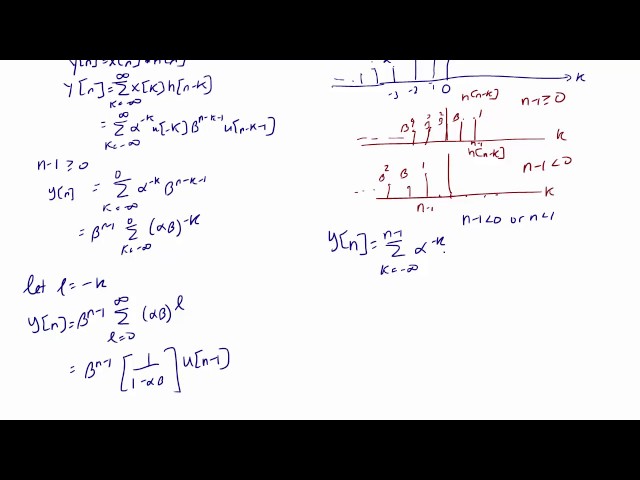 y[n]=x[n]*h[n]
y[n]=∑_{k=-∞}^{∞} x[k]h[n-k]
=∑_{k=-∞}^{∞} α^{-k} u[-k] β^{n-k-1} u[n-k-1]
n-1≥0
y[n] = ∑_{k=-∞}^{0} α^{-k} β^{n-k-1}
= β^{n-1} ∑_{k=-∞}^{0} (αβ)^{-k}
let l=-k
y[n]=β^{n-1} ∑_{l=0}^{∞} (αβ)^l
= β^{n-1} [1/(1-αβ)] u[n-1]
-3 -2 -1 0 k
h[n-k] n-1≥0
β 1 k
n-1
h[n-k] n-1<0
β² β 1 k
n-1
n-1<0 or n<1
y[n]=∑_{k=-∞}^{n-1} α^{-k}